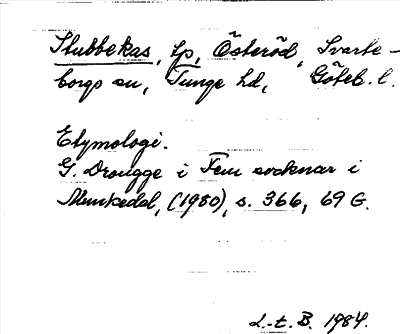 Stubbekas, tp, Österöd, Svarte-
borgs sn, Tunge hd, Göteb. l.
Etymologi.
G. Drougge i Fem socknar i
Munkedal, (1980), s. 366, 69 G.
L.-t. B. 1984.